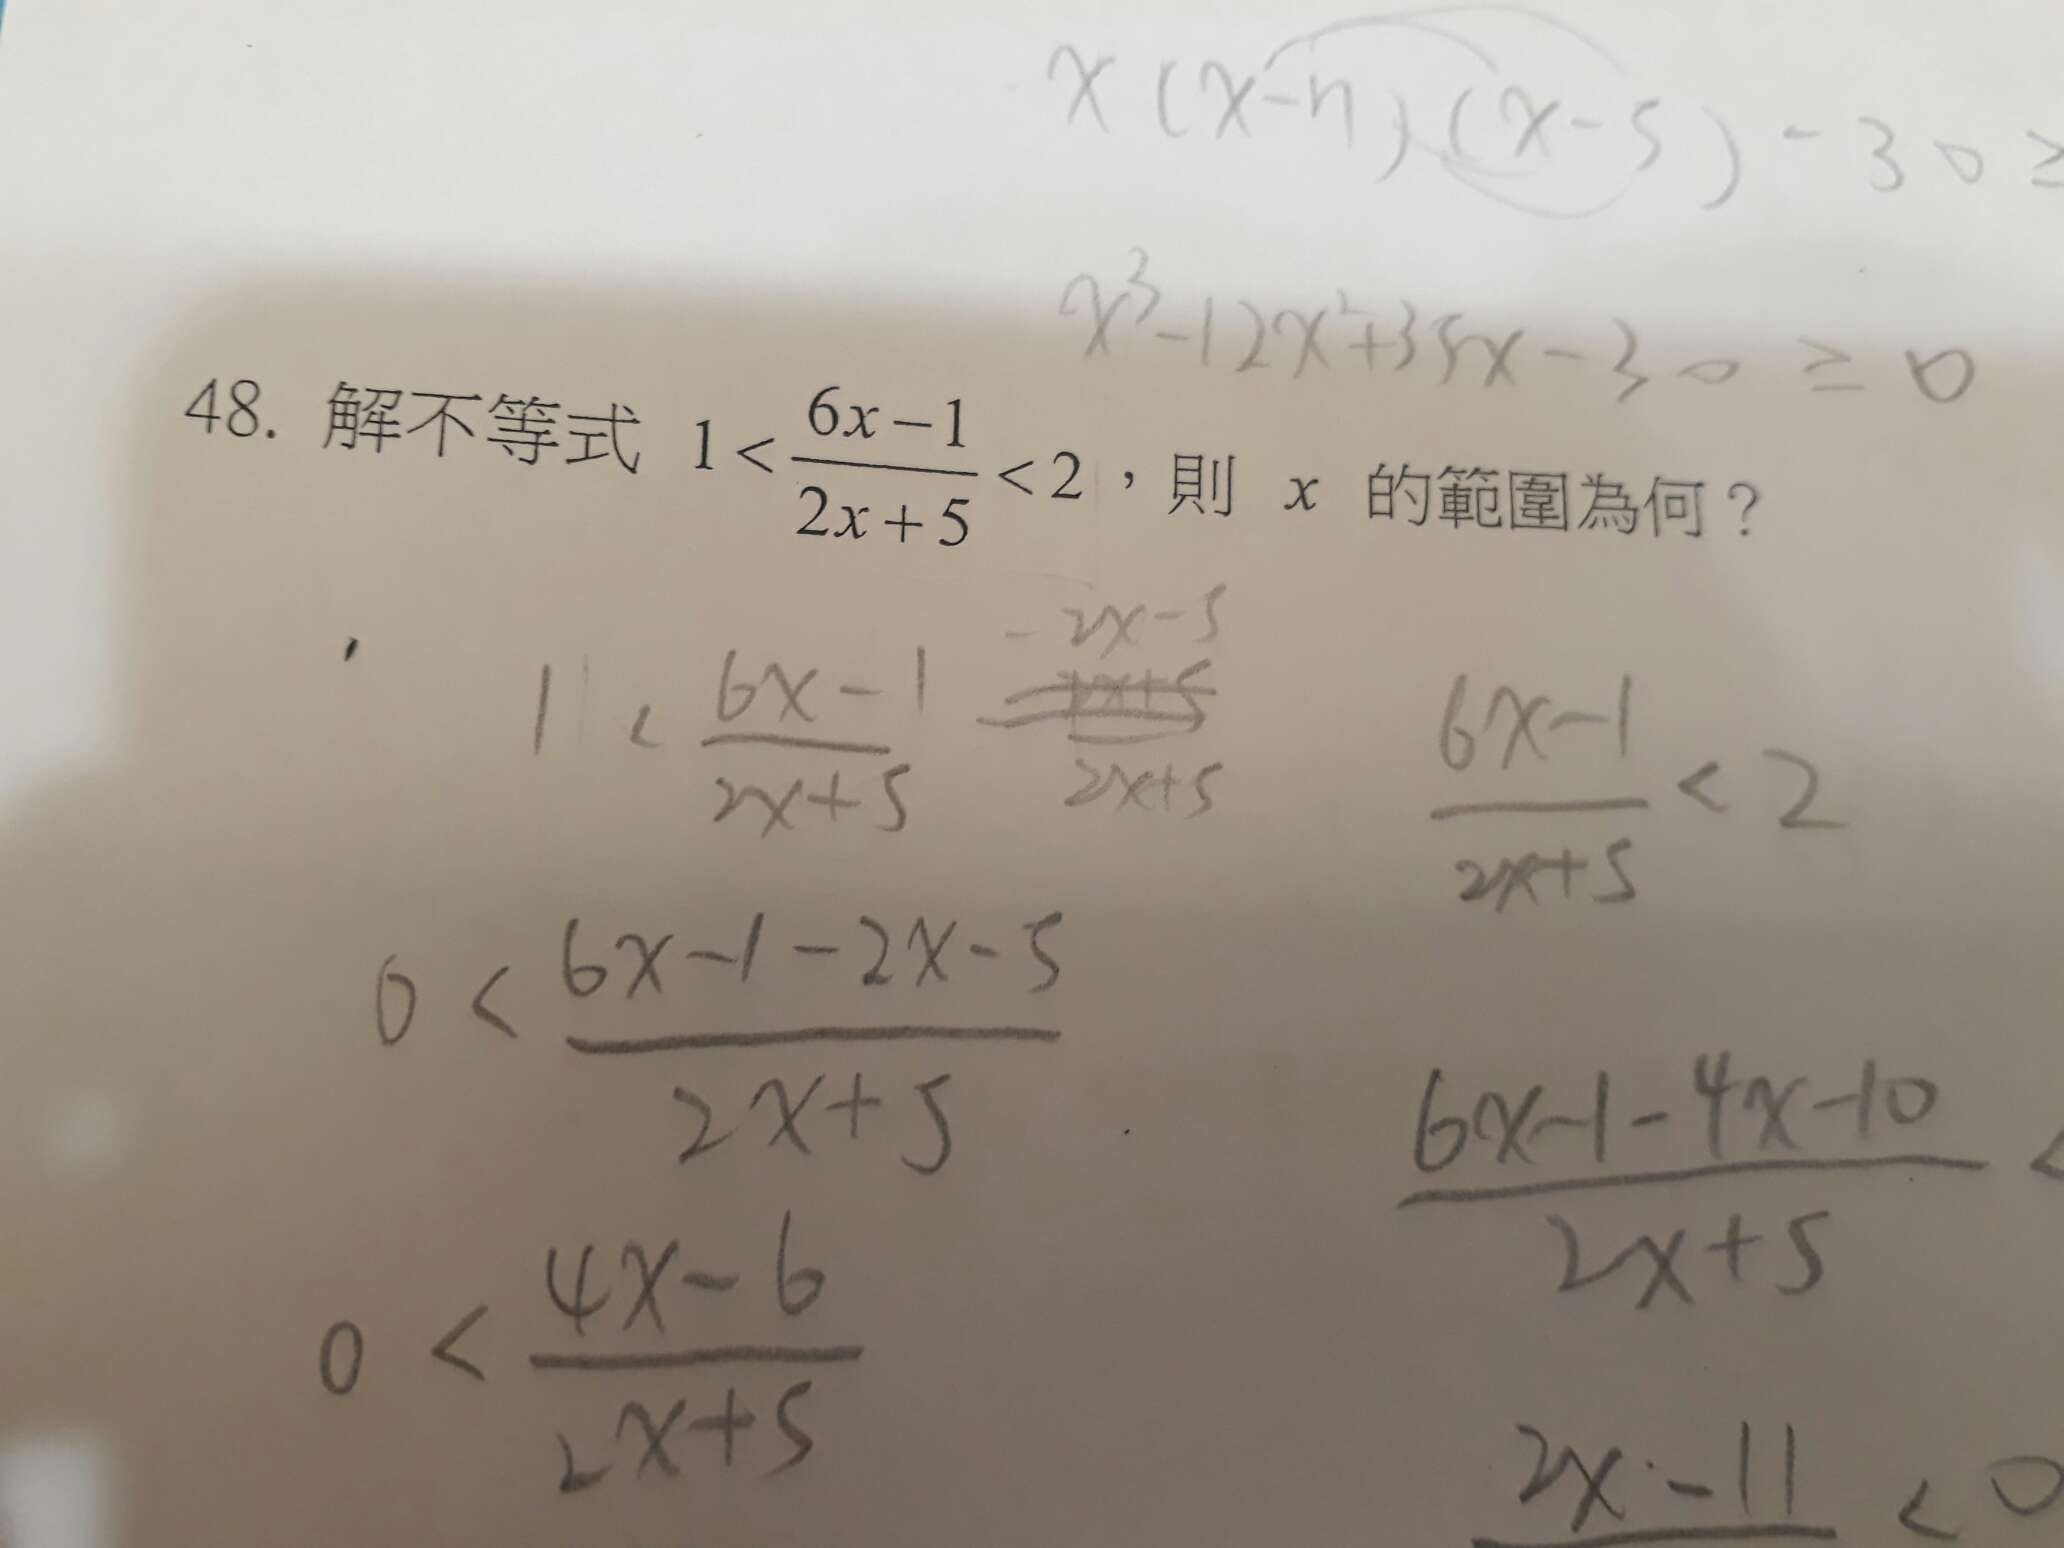 x(x-7)(x-5)-30≥
x³-12x²+35x-30≥0
48. 解不等式 1<(6x-1)/(2x+5)<2，則 x 的範圍為何？
-2x-5
1<(6x-1)/(2x+5) /(2x+5)
(6x-1)/(2x+5)<2
0<(6x-1-2x-5)/(2x+5)
(6x-1-4x-10)/(2x+5)<
0<(4x-6)/(2x+5)
2x-11<0